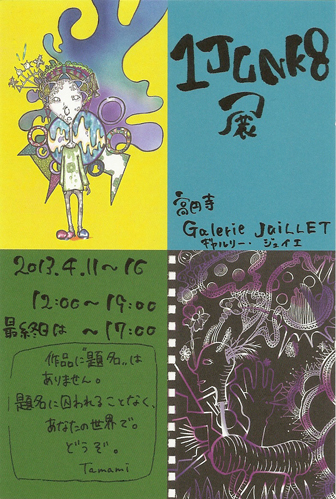 1JUNK8
展
高円寺
Galerie JAiLLET
ギャルリー・ジュイエ
2013.4.11〜16
12:00〜19:00
最終日は 〜17:00
作品に『題名』は
ありません。
題名に囚われることなく、
あなたの世界で。
どうぞ。
Tamami